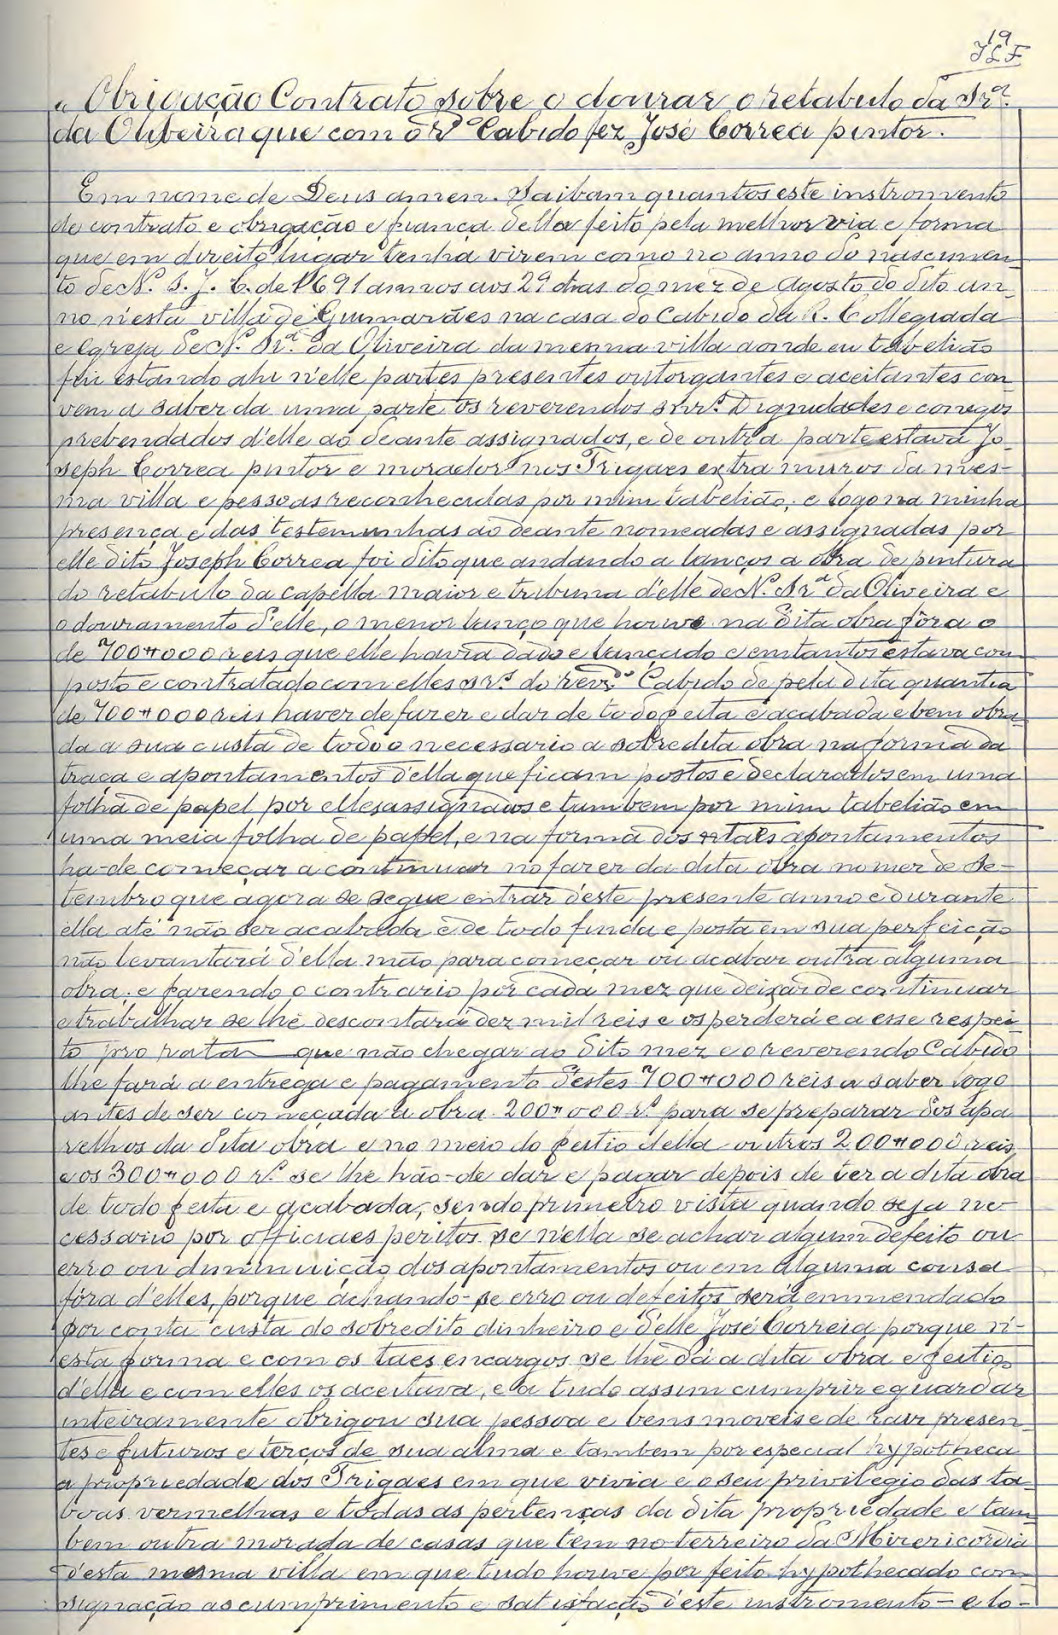 19
JLF
"Obrigação Contrato sobre o dourar o retabulo da Sr.ª
da Oliveira que com o R.do Cabido fez José Correa pintor.
Em nome de Deus amen. Saibam quantos este instromento
de contrato e obrigação e fiança della feito pela melhor via e forma
que em direito lugar tenha virem como no anno do nascimen-
to de N. S. J. C. de 1691 annos aos 29 dias do mez de Agosto do dito an-
no n'esta villa de Guimarães na casa do Cabido da R. Collegiada
e Egreja de N. Sr.ª da Oliveira da mesma villa aonde eu tabelião
fui estando ahi n'elle partes presentes outorgantes e aceitantes con-
vem a saber da uma parte os reverendos snr.s Dignidades e conegos
prebendados d'elle ao deante assignados, e de outra parte estava Jo-
seph Correa pintor e morador nos Trigaes extra muros da mes-
ma villa e pessoas reconhecidas por mim tabelião; e logo na minha
presença e das testemunhas ao deante nomeadas e assignadas por
elle dito Joseph Correa foi dito que andando a lanços a obra de pintura
do retabulo da capella maior e tribuna d'elle de N. Sr.ª da Oliveira e
o douramento d'elle, o menor lanço que houve na dita obra fôra o
de 700#000 reis que elle havia dado e lançado e emtantos estava com
posto e contratado com elles sr.s do rev.do Cabido de pela dita quantia
de 700#000 reis haver de fazer e dar de todo feita e acabada e bem obra-
da a sua custa de todo o necessario a sobredita obra na forma da
traça e apontamentos d'ella que ficam postos e declarados em uma
folha de papel, por elles assignados e tambem por mim tabelião em
uma meia folha de papel, e na forma dos taes apontamentos
ha-de começar a continuar no fazer da dita obra no mez de Se-
tembro que agora se segue entrar d'este presente anno e durante
ella até não ser acabada e de todo finda e posta em sua perfeição
não levantará d'ella mão para começar ou acabar outra alguma
obra; e fazendo o contrario por cada mez que deixar de continuar
e trabalhar se lhe descontará dez mil reis e os perderá e a esse respei-
to pro rata que não chegar ao dito mez e o reverendo Cabido
lhe fará a entrega e pagamento d'estes 700#000 reis a saber logo
antes de ser começada a obra 200#000 r.s para se preparar dos apa-
relhos da dita obra e no meio do feitio della outros 200#000 reis
e os 300#000 r.s se lhe hão-de dar e pagar depois de ter a dita obra
de todo feita e acabada, sendo primeiro vista quando seja ne-
cessario por officiaes peritos se n'ella se achar algum defeito ou
erro ou diminuição dos apontamentos ou em alguma cousa
fóra d'elles, porque achando-se erro ou defeitos será emmendado
por conta custa do sobredito dinheiro e d'elle José Correia porque n'-
esta forma e com os taes encargos se lhe dá a dita obra e feitio
d'ella e com elles os aceitava, e a tudo assim cumprir e guardar
inteiramente obrigou sua pessoa e bens moveis e de raiz presen-
tes e futuros e terços de sua alma e tambem por especial hypotheca
a propriedade dos Trigaes em que vivia e o seu privilegio das ta-
boas vermelhas e todas as pertenças da dita propriedade e tam-
bem outra morada de casas que tem no terreiro da Misericordia
d'esta mesma villa em que tudo houve por feito hypothecado con-
signação ao cumprimento e satisfacção d'este instromento - e lo-